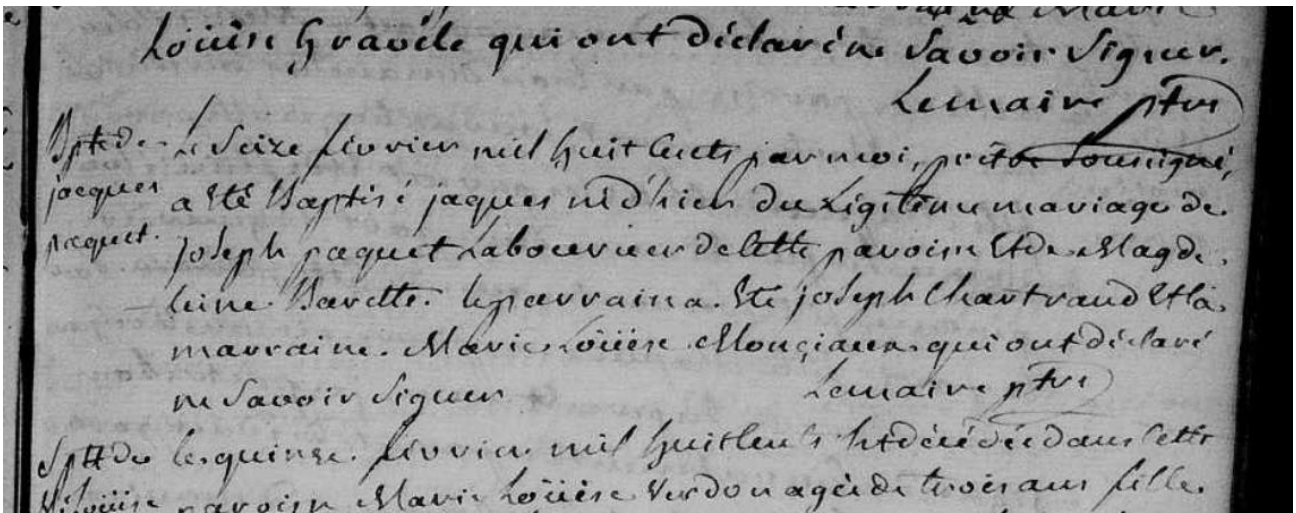 Marie
Loüise Gravele qui ont déclaré ne Savoir Signer.
Lemaire ptre
Bpt de Le Seize fevrier mil huit Cents par moi, prêtre Soussigné,
jacques a eté Baptisé jaques né d'hier du Légitime mariage de
paquet. joseph paquet Laboureur de Cette paroisse Et de Magde
leine Barette. le parrain a Eté joseph Chartrand Et la
marraine Marie Loüise qui ont déclaré
ne Savoir Signer Lemaire ptre
Spt de le quinze fevrier mil huit Cents est décédée dans Cette
M. Loüise paroisse Marie Loüise Verdon agée de trois ans fille